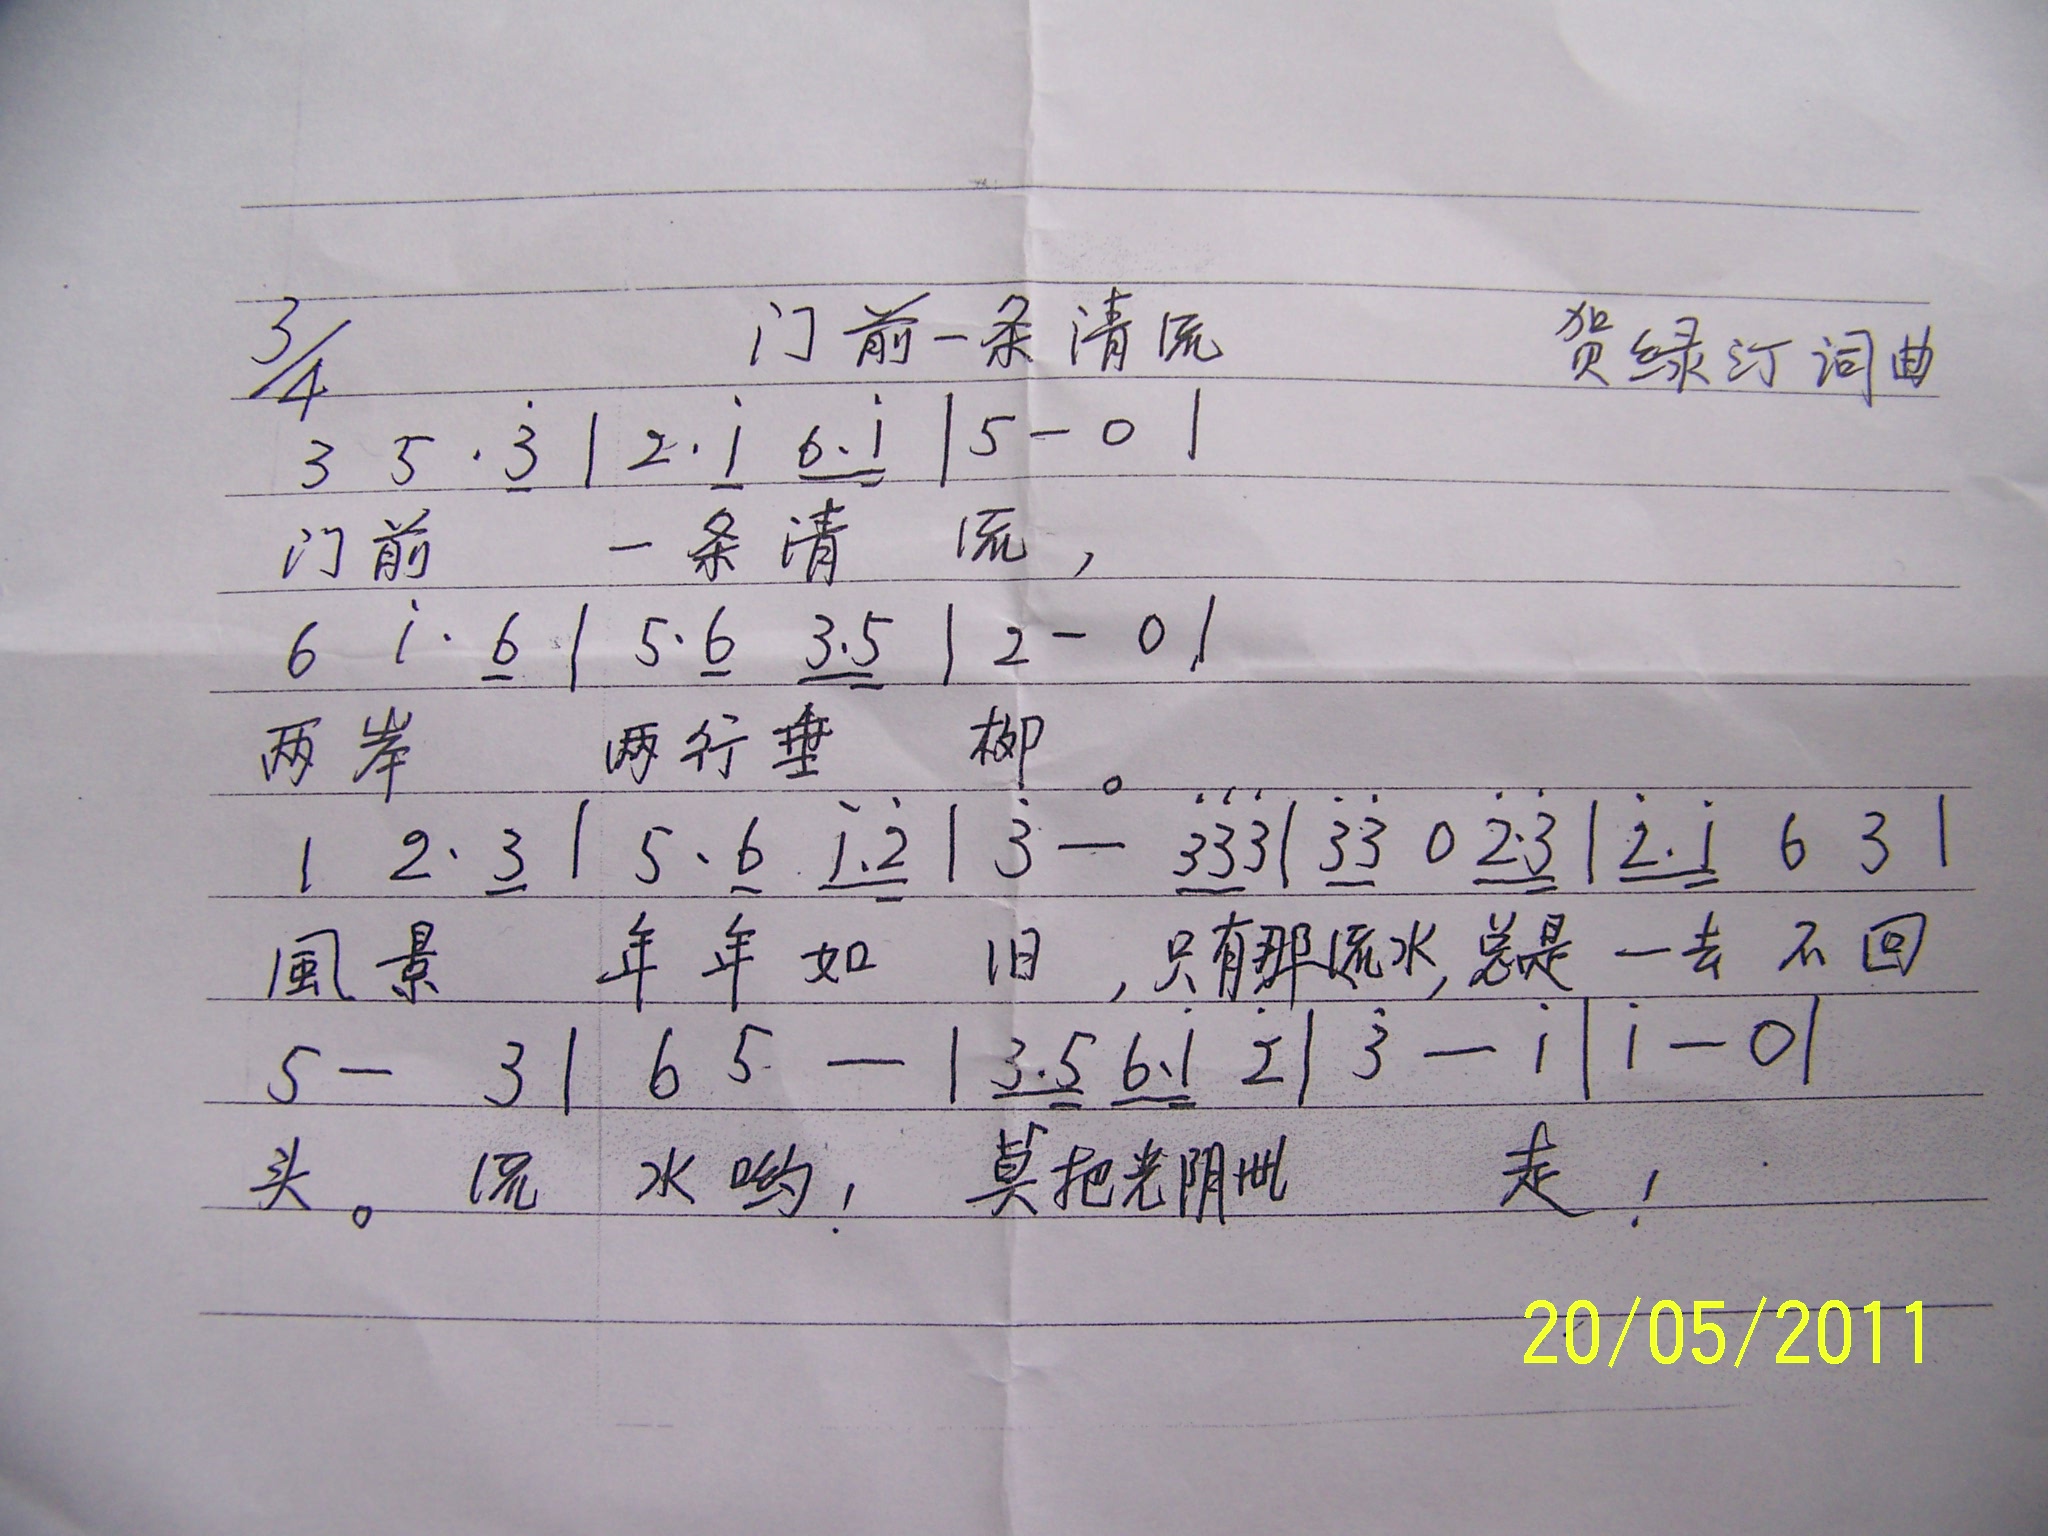 3/4 门前一条清流 贺绿汀词曲
3 5 · 3̇ | 2 · i 6 . i | 5 — 0 |
门前 一条清 流，
6 i · 6 | 5 · 6 3 . 5 | 2 — 0 |
两岸 两行垂 柳。
1 2 · 3 | 5 · 6 i . 2̇ | 3̇ — 3̇3̇3̇ | 3̇3̇ 0 2̇ . 3̇ | 2̇ . i 6 3 |
風景 年年如 旧，只有那流水，总是一去不回
5 — 3 | 6 5 — | 3 . 5 6 . i 2̇ | 3̇ — i | i — 0 |
头。流 水哟！ 莫把光阴带 走！
20/05/2011